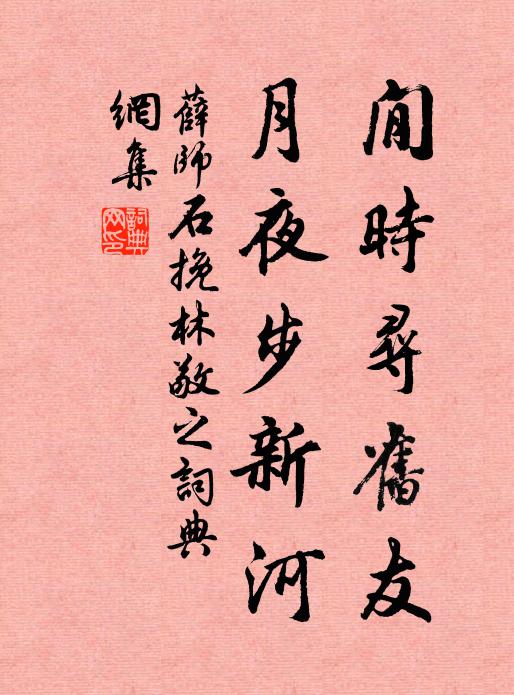 閒時尋舊友
月夜步新河
薛師石挽林敬之詞典
網集
詞典
網印